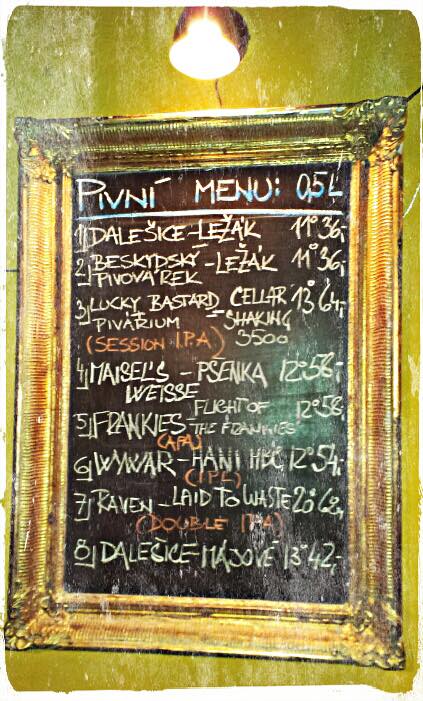 PIVNÍ MENU: 0,5L
1) DALEŠICE - LEŽÁK 11° 36,-
2) BESKYDSKÝ - LEŽÁK 11° 36,-
PIVOVÁREK
3) LUCKY BASTARD CELLAR 13° 64,-
PIVÁRIUM - SHAKING
(SESSION I.P.A) 3500
4) MAISEL'S - PSENKA 12° 58,-
WEISSE
5) FRANKIES - FLIGHT OF 12° 58,-
THE FRANKIES
(APA)
6) WYWAR - HANI HBC 12° 54,-
(I.P.L)
7) RAVEN - LAID TO WASTE 20° 62,-
(DOUBLE IPA)
8) DALEŠICE - MÁJOVÉ 13° 42,-